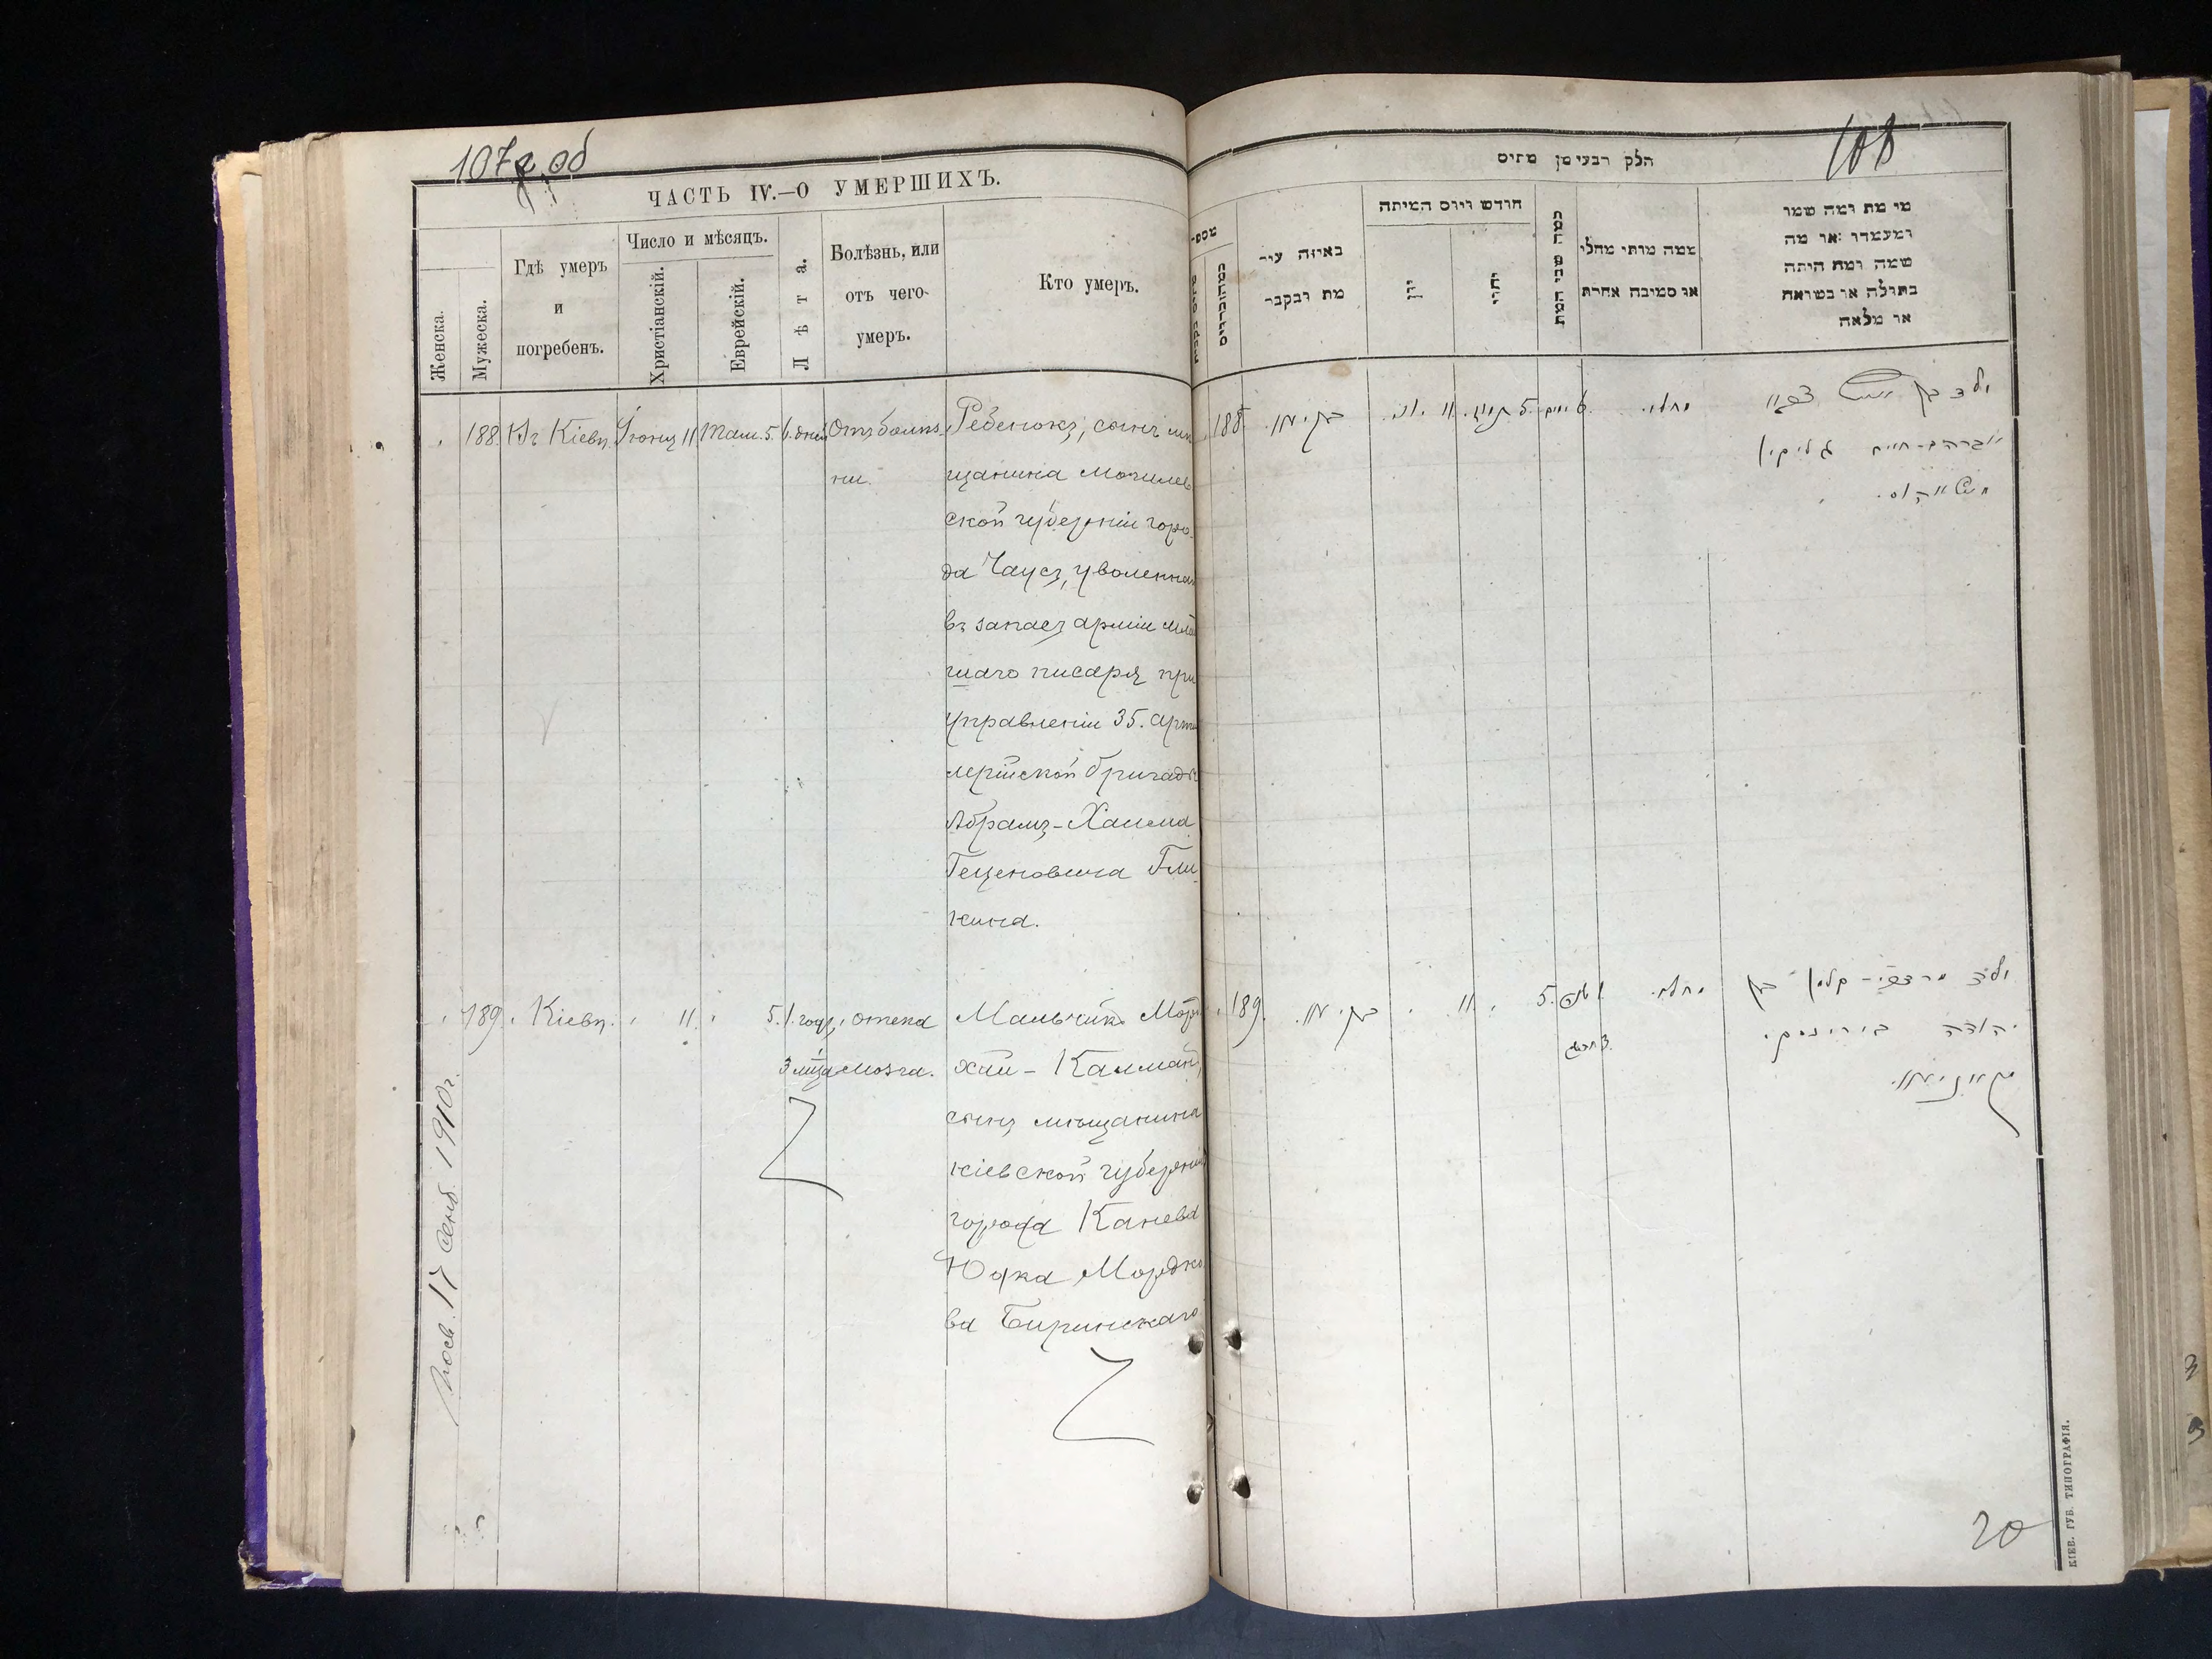 107 об
ЧАСТЬ IV.—О УМЕРШИХЪ.
Женска.
Мужеска.
Гдѣ умеръ
и
погребенъ.
Число и мѣсяцъ.
Христіанскій.
Еврейскій.
Лѣта.
Болѣзнь, или
отъ чего
умеръ.
Кто умеръ.
188 Въ Кіевѣ Іюня 11 Там. 5.
Ребенокъ, сынъ мѣ
щанина Могилев
ской губерніи горо
да Чаусъ, уволенна
въ запасъ арміи млад
шаго писаря при
управленіи 35. арти
лерійской бригады
Абрамъ-Хаима
Гли
кина.
189. Кіевѣ. 11. 5. 1. годъ, отека Мальчикъ Морд
3 мѣся мозга. хай-Калман,
сынъ мѣщанина
кіевской губерніи
города Канева
Юдка Мордко
ва Биринскаго
Посв. 17 сент. 1910 г.
108
חלק רבעי מן מתים
מספר
באיזה עיר
מת ונקבר
חודש ויום המיתה
יון
יהדי
כמה שני המת
ממה מותי מחלי
או מסיבה אחרת
מי מת ומה שמו
ומעמדו או מה
שמה ומה היתה
בתולה או נשואה
או מלאה
188 11 תמוז 5
אברהם-חיים גליקין
189. 11. 5.
ילד מרדכי-קלמן בן
יהודה בירינסקי.
20
КІЕВ. ГУБ. ТИПОГРАФІЯ.